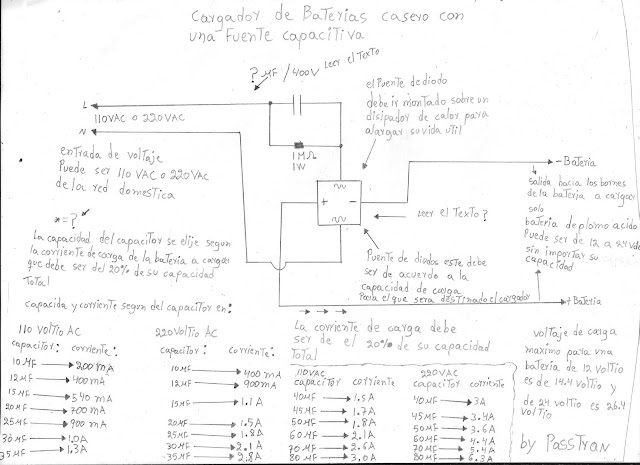 Cargador de Baterias casero con
una Fuente capacitiva
? MF / 400V leer el Texto
L
110VAC o 220VAC
N
1MΩ
1W
el Puente de diodo
debe ir montado sobre un
disipador de calor para
alargar su vida util
entrada de voltaje
Puede ser 110 VAC o 220VAC
de la red domestica
- Bateria
salida hacia los bornes
de la bateria a cargar
solo
bateria de plomo acido
Puede ser de 12 a 24 vdc
sin importar su
capacidad
+ -
leer el Texto ?
* = ?
La capacidad del capacitor se elije segun
la corriente de carga de la bateria a cargar
que debe ser del 20% de su capacidad
Total
Puente de diodos este debe
ser de acuerdo a la
capacidad de carga
Para el que sera destinado el cargador
+ Bateria
capacida y corriente segun del capacitor en:
La corriente de carga debe
ser de el 20% de su capacidad
Total
110 Voltio AC
capacitor: corriente:
10MF 200mA
12MF 400mA
15MF 540mA
20MF 700mA
25MF 900mA
30MF 1.0A
35MF 1.3A
220 Voltio AC
capacitor: corriente:
10MF 400mA
12MF 900mA
15MF 1.1A
20MF 1.5A
25MF 1.8A
30MF 2.1A
35MF 2.8A
110VAC
capacitor corriente
40MF 1.5A
45MF 1.7A
50MF 1.8A
60MF 2.1A
70MF 2.6A
80MF 3.0A
220VAC
capacitor corriente
40MF 3A
45MF 3.4A
50MF 3.6A
60MF 4.4A
70MF 5.4A
80MF 6.3A
voltaje de carga
maximo para una
bateria de 12 voltio
es de 14.4 voltio y
de 24 voltio es 26.4
voltio
by PassTran